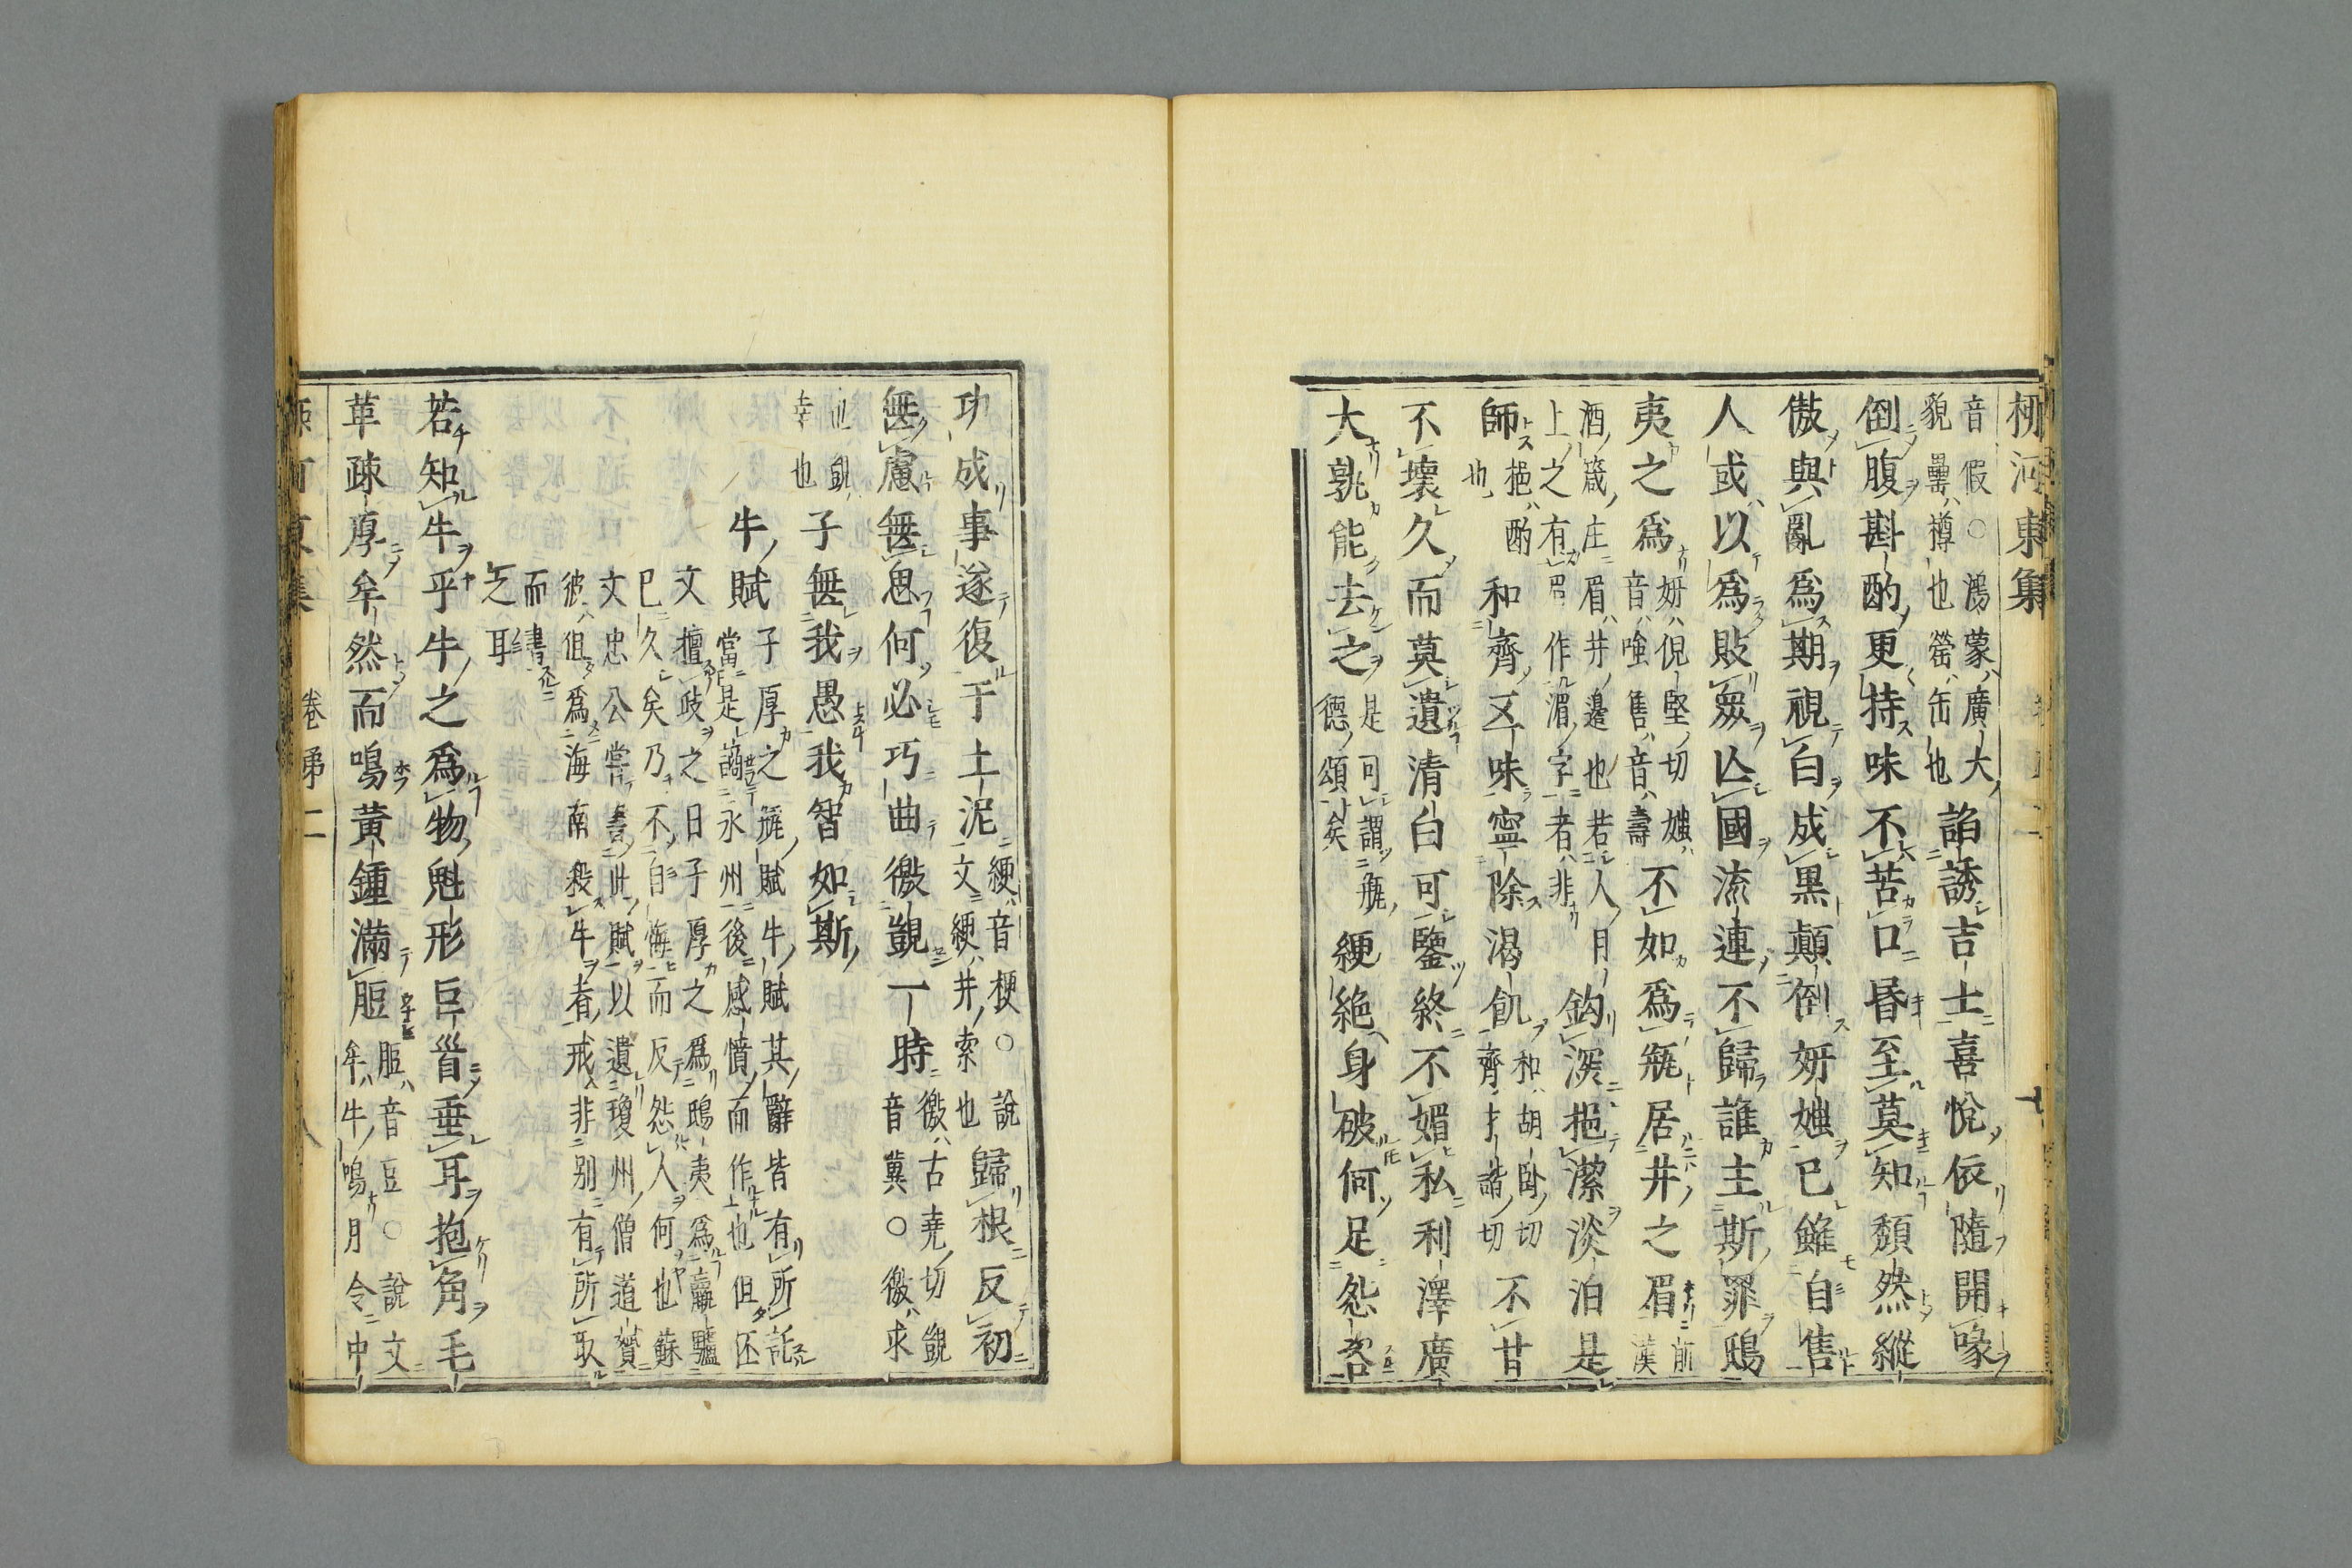 柳河東集
音假○鴻蒙ハ廣大ノ
貌罍ハ樽也罃ハ缶也
謟誘吉士喜悅依隨開喙
倒腹斟酌更持味不苦口昏至莫知頹然縱
傲與亂爲期視白成黑顛倒妍媸已雖自售
人或以爲敗衆亾國流連不歸誰主斯罪鴟
夷之爲
妍ハ倪堅ノ切媸ハ
音ハ嗤售ハ音ハ壽
不如爲甁居井之眉
前漢
酒ノ箴ノ庄ニ眉ハ井ノ邊也若人ノ目ノ
上ノ之有眉作湄ノ字者ハ非ナリ
鈎深挹潔淡泊是
師
挹ハ酌
也
和齊五味寧除渴飢
和ハ胡卧ノ切
齊ハ才詣ノ切
不甘
不壞久而莫遺清白可鑒終不媚私利澤廣
大孰能去之
是可謂甁ノ
德ノ頌矣
綆絶身破何足怨咨
功成事遂復于土泥
綆ハ音梗○說
文綆ハ井ノ索也
歸根反初
無慮無思何必巧曲徼覬一時
徼ハ古堯ノ切覬
音冀○徼ハ求
也覬ハ
幸也
子無我愚我智如斯
牛ノ賦
子厚之甁ノ賦牛ノ賦其ノ辭皆有所託
當是謫永州後感憤而作也但坯
文擅歧之日子厚之爲鴟夷爲羸驢
已久矣乃不自悔而反怨人何也蘇
文忠公嘗書此ノ賦以遺瓊州ノ僧道贇
彼ハ但爲海南殺牛者ノ戒非別有所取
而書
之耳
若知牛乎牛ノ之爲物魁形巨首垂耳抱角毛
革疎厚牟然而鳴黄鍾滿脰
脰ハ音豆○說文
牟ハ牛ノ鳴ナリ月令中
卷第二